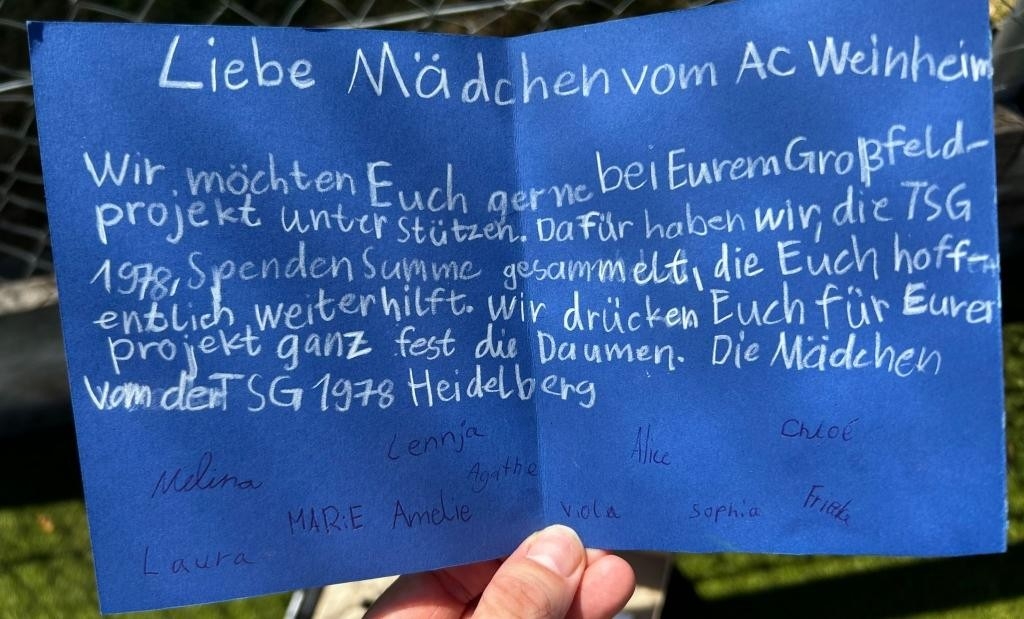 Liebe Mädchen vom AC Weinheim
Wir möchten Euch gerne bei Eurem Großfeld-
projekt unterstützen. Dafür haben wir, die TSG
1978, Spenden Summe gesammelt, die Euch hoff-
entlich weiterhilft. Wir drücken Euch für Eurer
projekt ganz fest die Daumen. Die Mädchen
vom der TSG 1978 Heidelberg
Lennja Alice Chloé
Melina Agathe
MARiE Amelie Viola Sophia Frieda
Laura